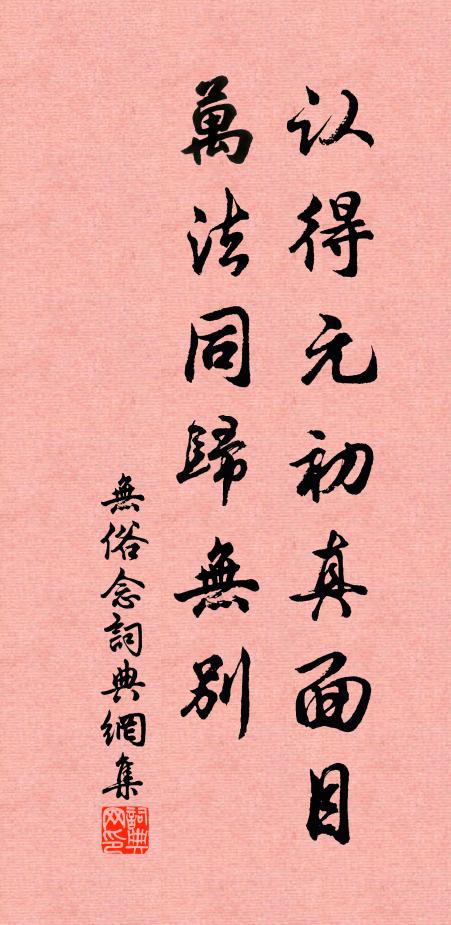 认得元初真面目
萬法同歸無別
無俗念詞典網集
詞典
网印